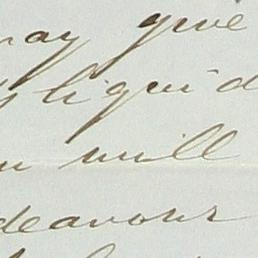 may give
liquid
will
deavour